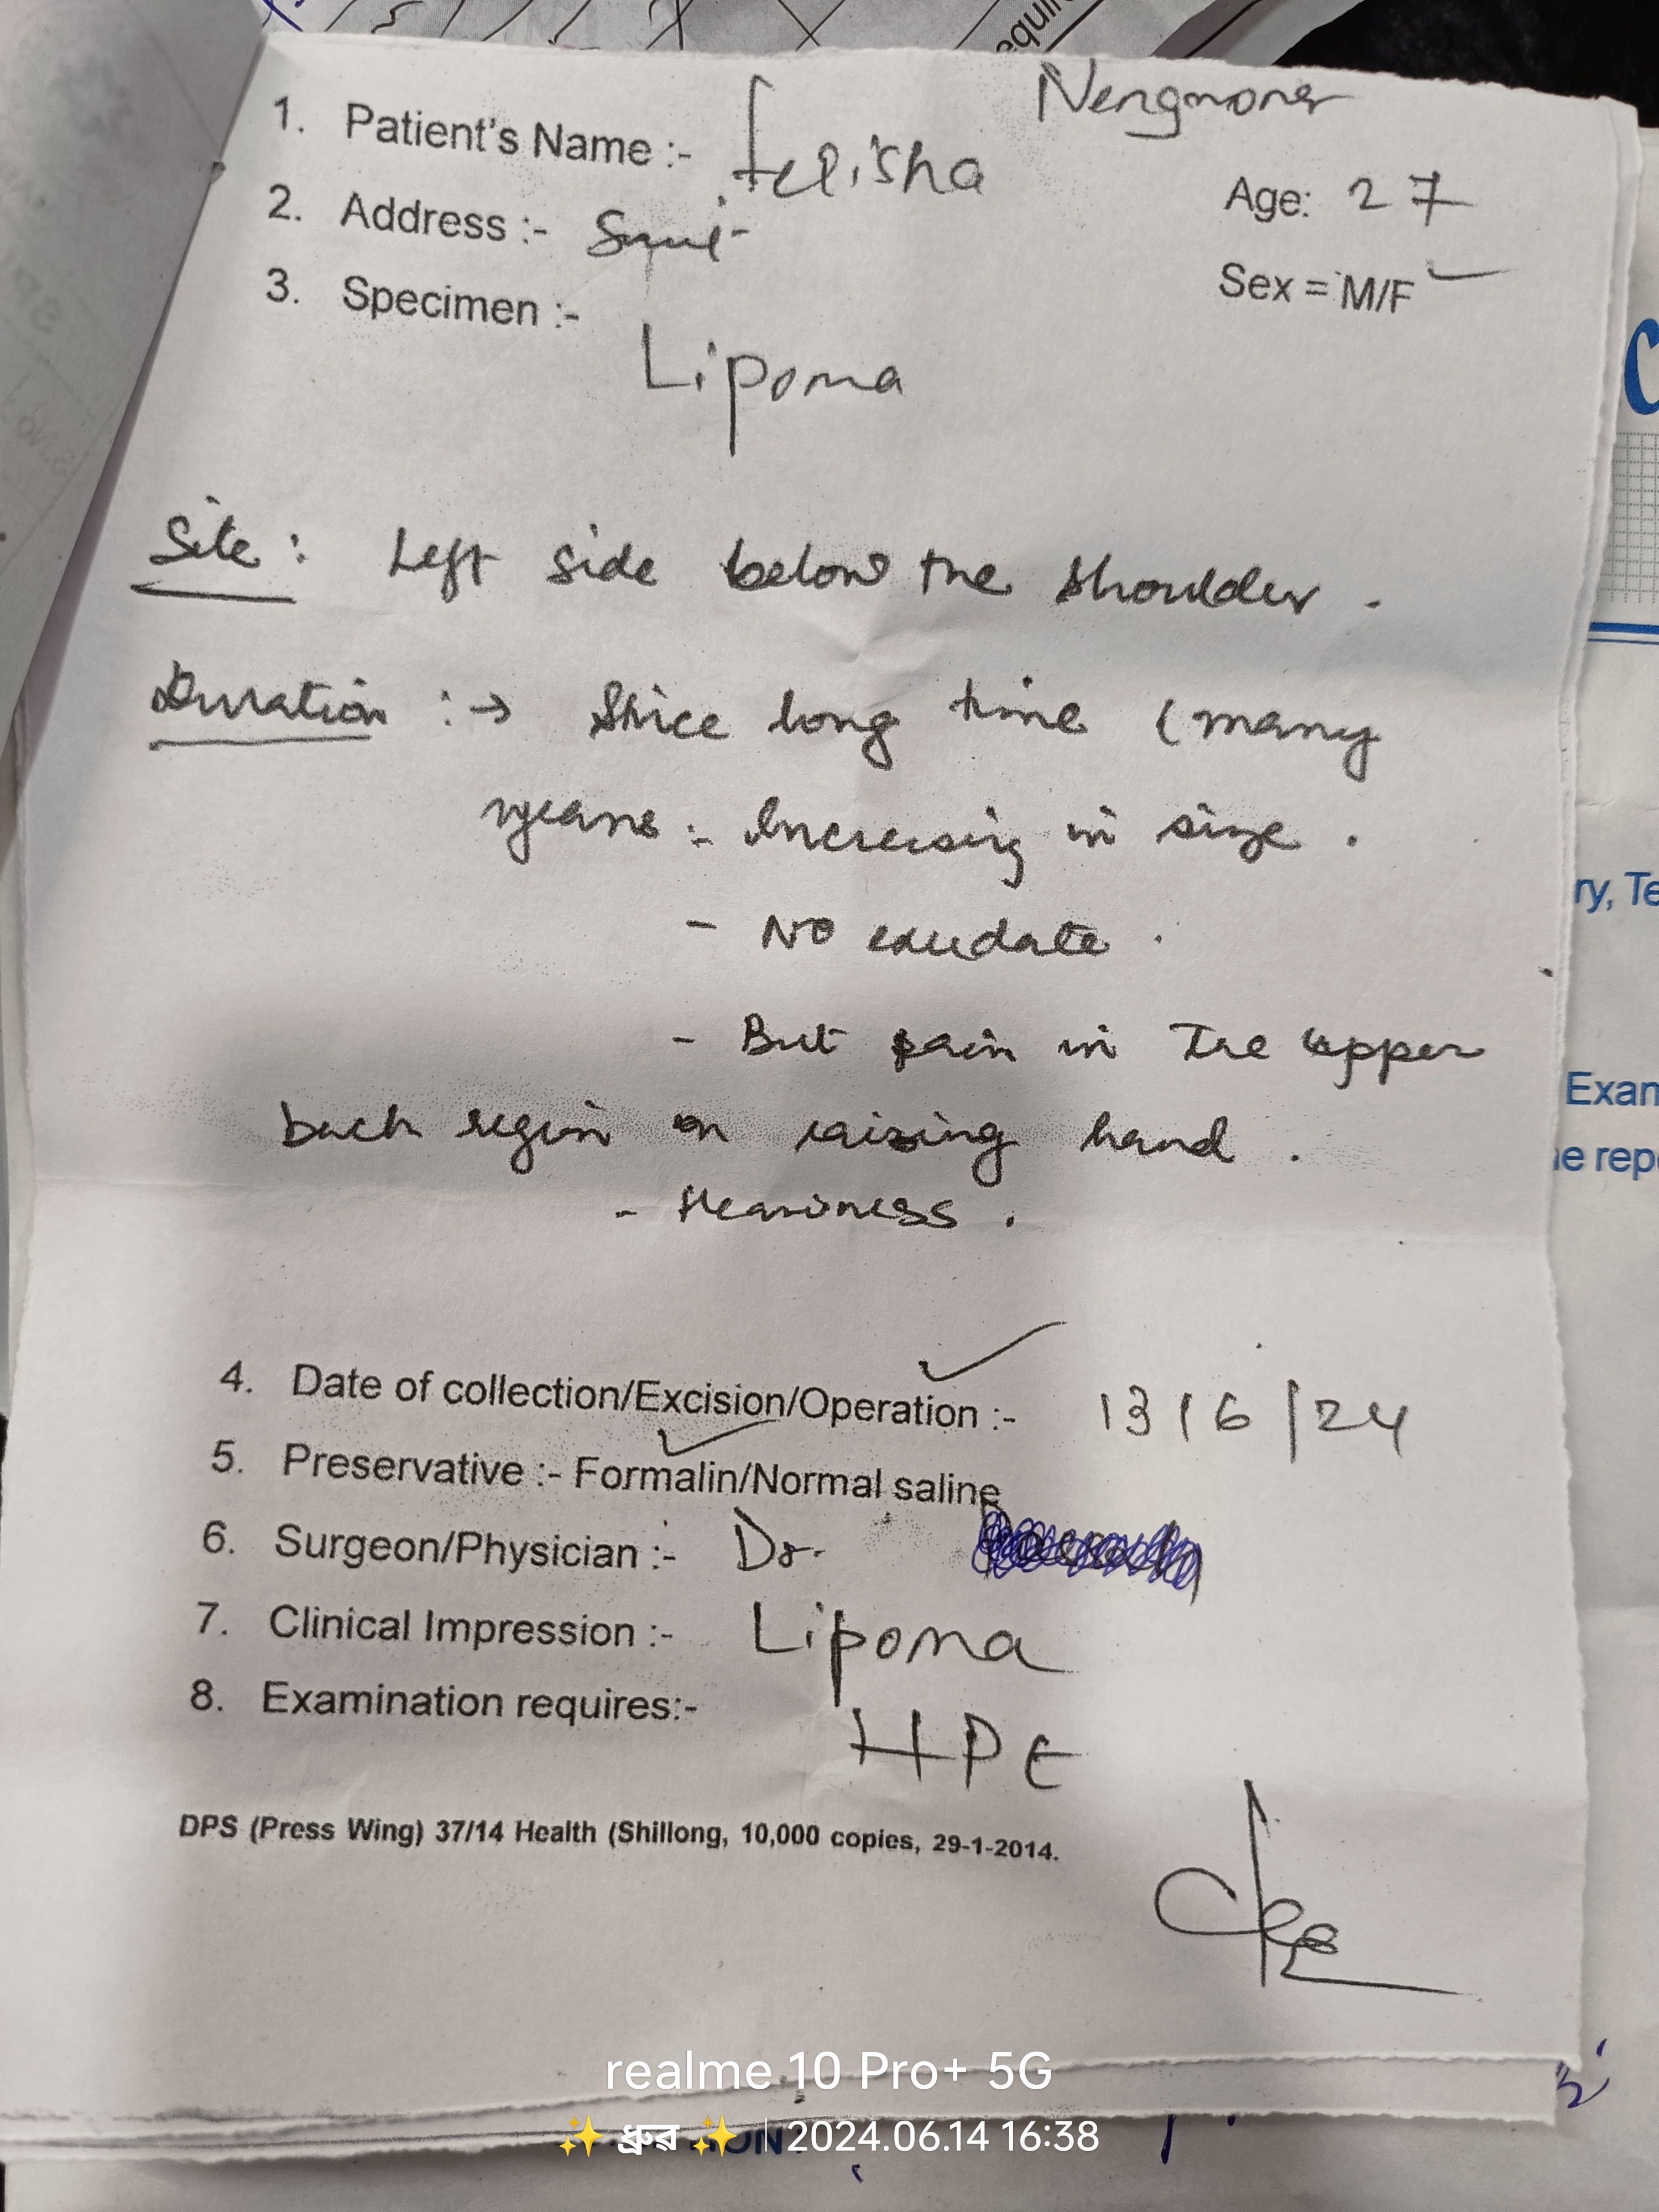 equir
1. Patient's Name :- felisha Nengmoner
Age: 27
2. Address :-
Sex = M/F
3. Specimen :-
Lipoma
Site : Left side below the shoulder .
Duration :→ Since long time (many
years :- Increasing in size .
- NO exudate .
- But pain in the upper
back region on raising hand .
- Heaviness .
4. Date of collection/Excision/Operation :- 13/6/24
5. Preservative :- Formalin/Normal saline
6. Surgeon/Physician :- Dr.
7. Clinical Impression :- Lipoma
8. Examination requires:-
HPE
DPS (Press Wing) 37/14 Health (Shillong, 10,000 copies, 29-1-2014.
C
ry, Te
Exan
e rep
realme 10 Pro+ 5G
✨ ধ্রুৱ ✨ | 2024.06.14 16:38